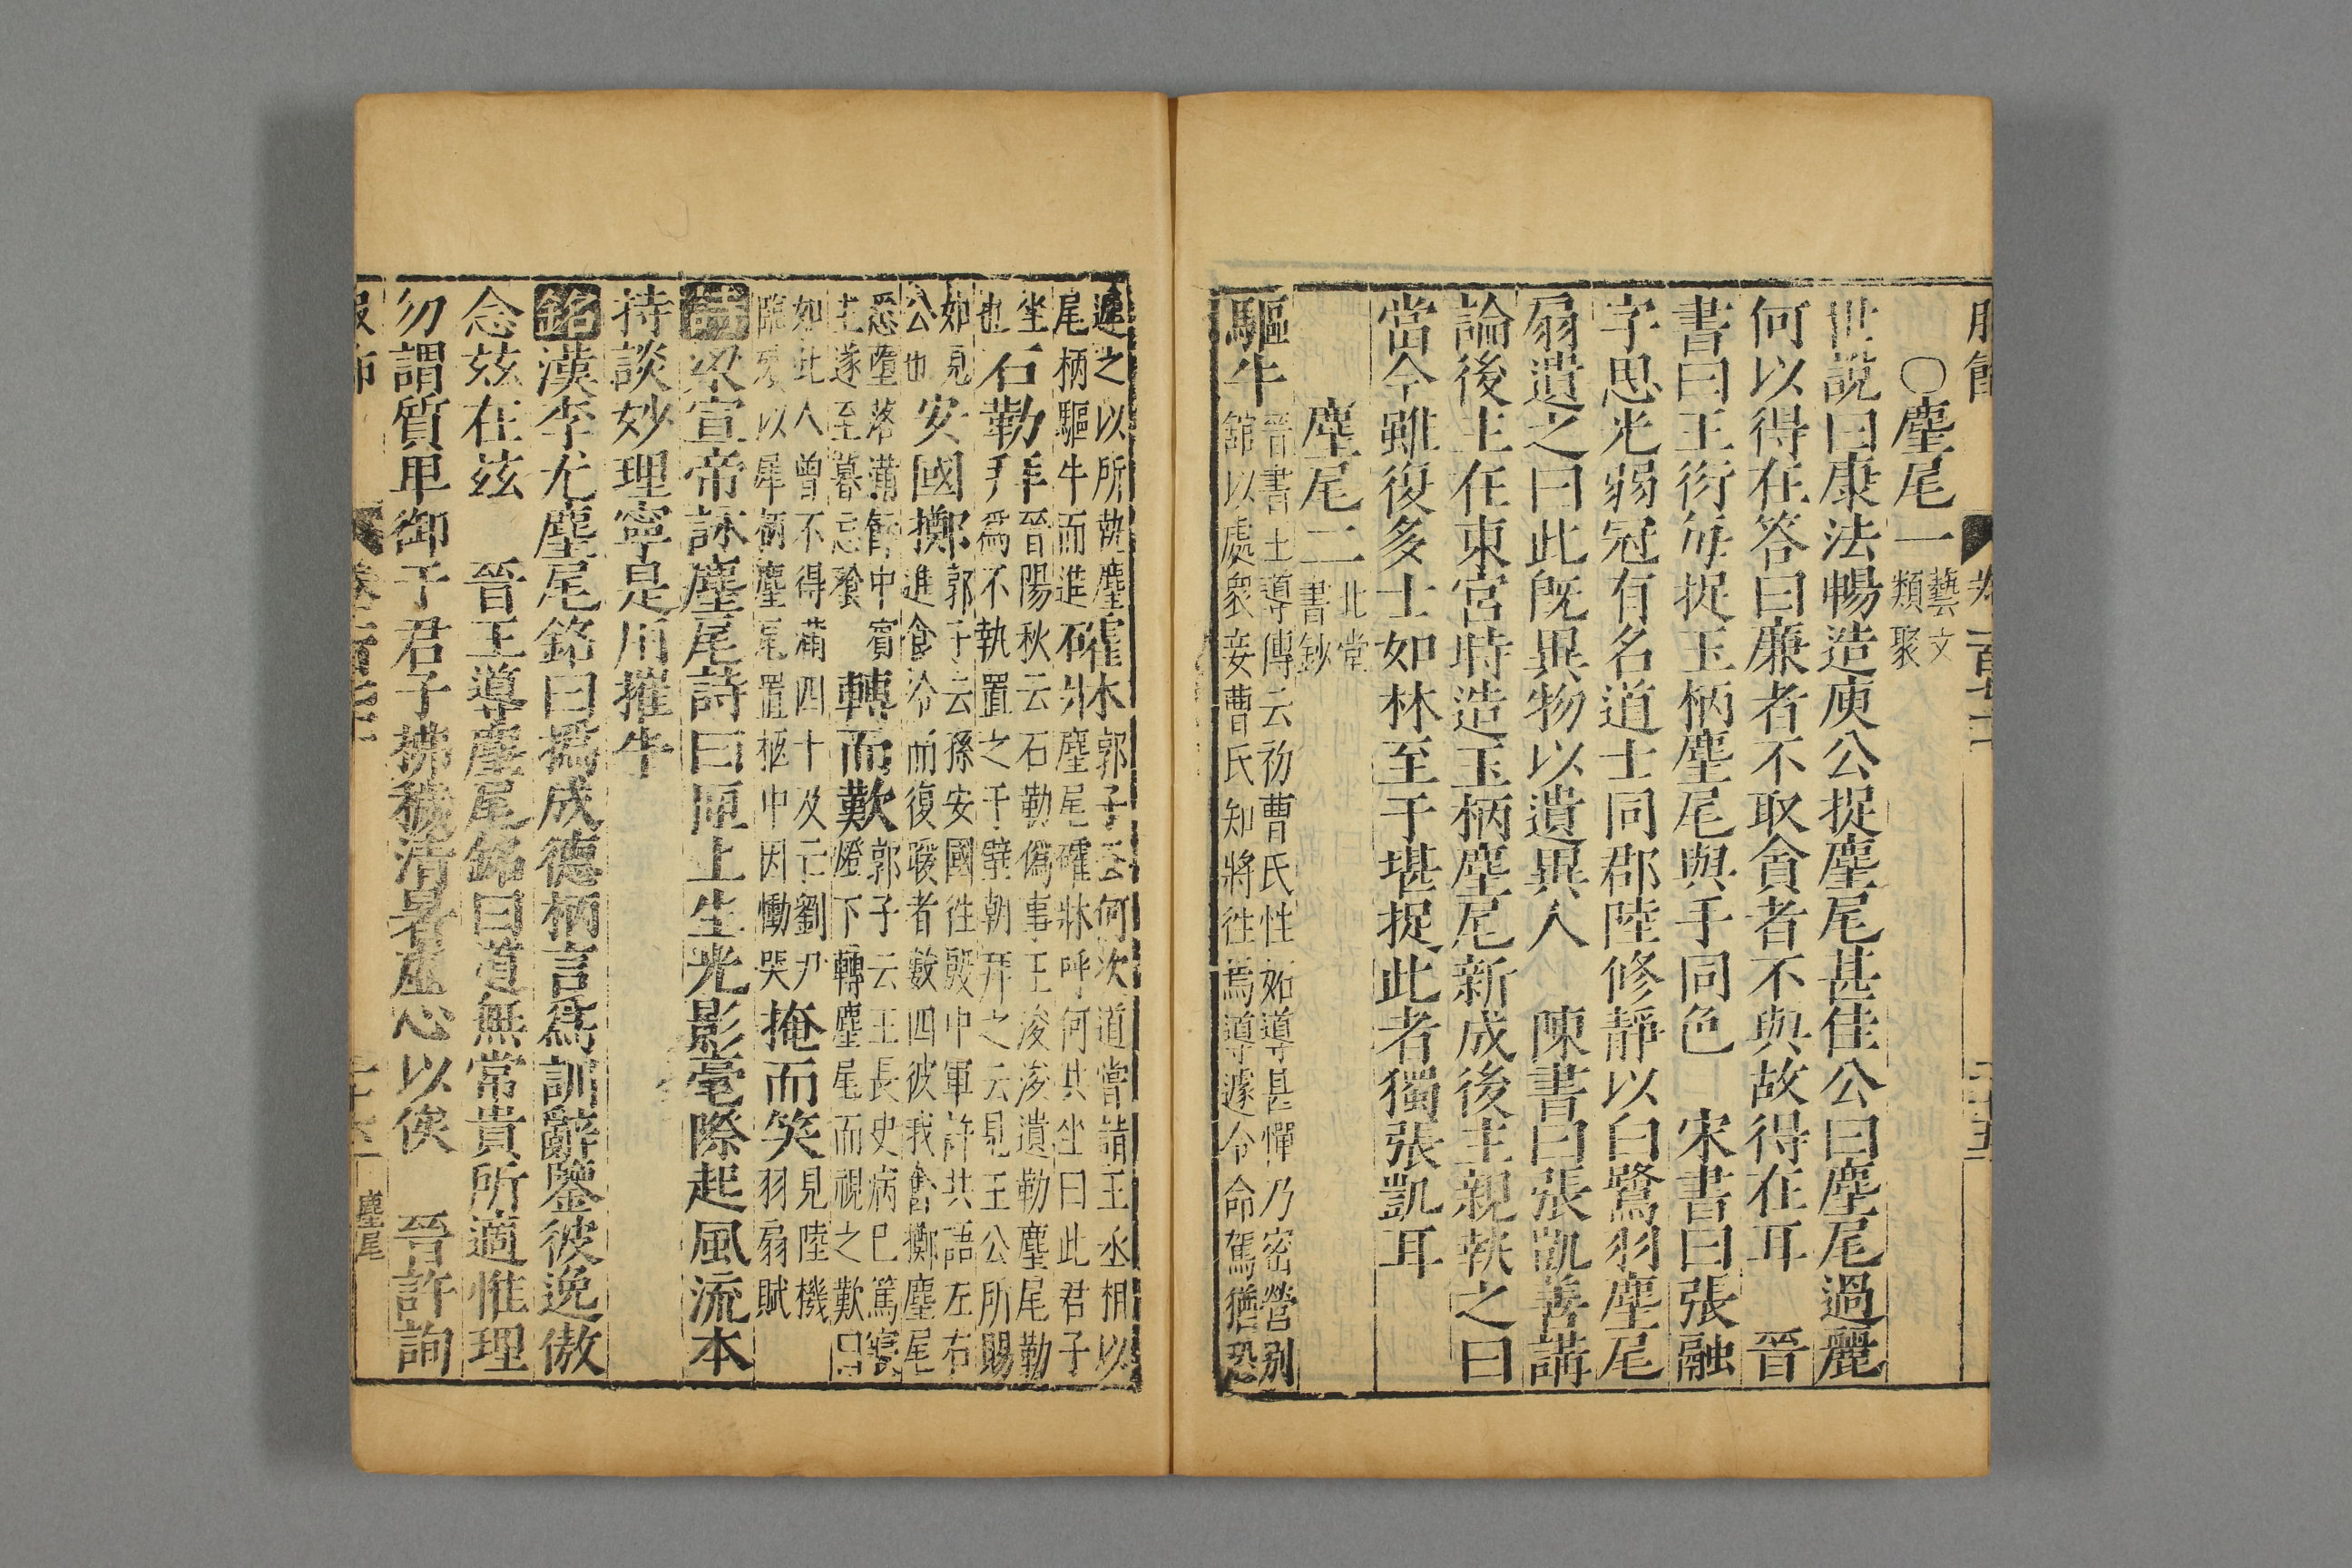 ○麈尾一藝文類聚
世說曰康法暢造庾公捉麈尾甚佳公曰麈尾過麗
何以得在答曰廉者不取貪者不與故得在耳　晉
書曰王衍每捉玉柄麈尾與手同色　宋書曰張融
字思光弱冠有名道士同郡陸修靜以白鷺羽麈尾
扇遺之曰此既異物以遺異人　陳書曰張凱善講
論後主在東宮時造玉柄麈尾新成後主親執之曰
當今雖復多士如林至于堪捉此者獨張凱耳
麈尾二北堂書鈔
驅牛晉書王導傳云初曹氏性妬導甚憚乃密營别
館以處衆妾曹氏知將往焉導遽令命駕猶恐
遲之以所執麈
尾柄驅牛而進
確牀郭子云何次道嘗請王丞相以
麈尾確牀呼何共坐曰此君子
坐
也
石勒手晉陽秋云石勒僞事王浚浚遺勒麈尾勒
爲不執置之于壁朝拜之云見王公所賜
如見
公也
安國擲郭子云孫安國往殷中軍許共語左右
進食冷而復暖者數四彼我奮擲麈尾
悉墮落滿飯中賓
主遂至暮忘飡
轉而歎郭子云王長史病已篤寢
燈下轉麈尾而視之歎曰
如此人曾不得滿四十及亡劉尹
臨殯以犀柄麈尾置柩中因慟哭
掩而笑見陸機
羽扇賦
詩梁宣帝詠麈尾詩曰匣上生光影毫際起風流本
持談妙理寧是用摧牛
銘漢李尤麈尾銘曰撝成德柄言爲訓辭鑒彼逸傲
念兹在兹　晉王導麈尾銘曰道無常貴所適惟理
勿謂質卑御于君子拂穢清暑虚心以俟　晉許詢
麈尾